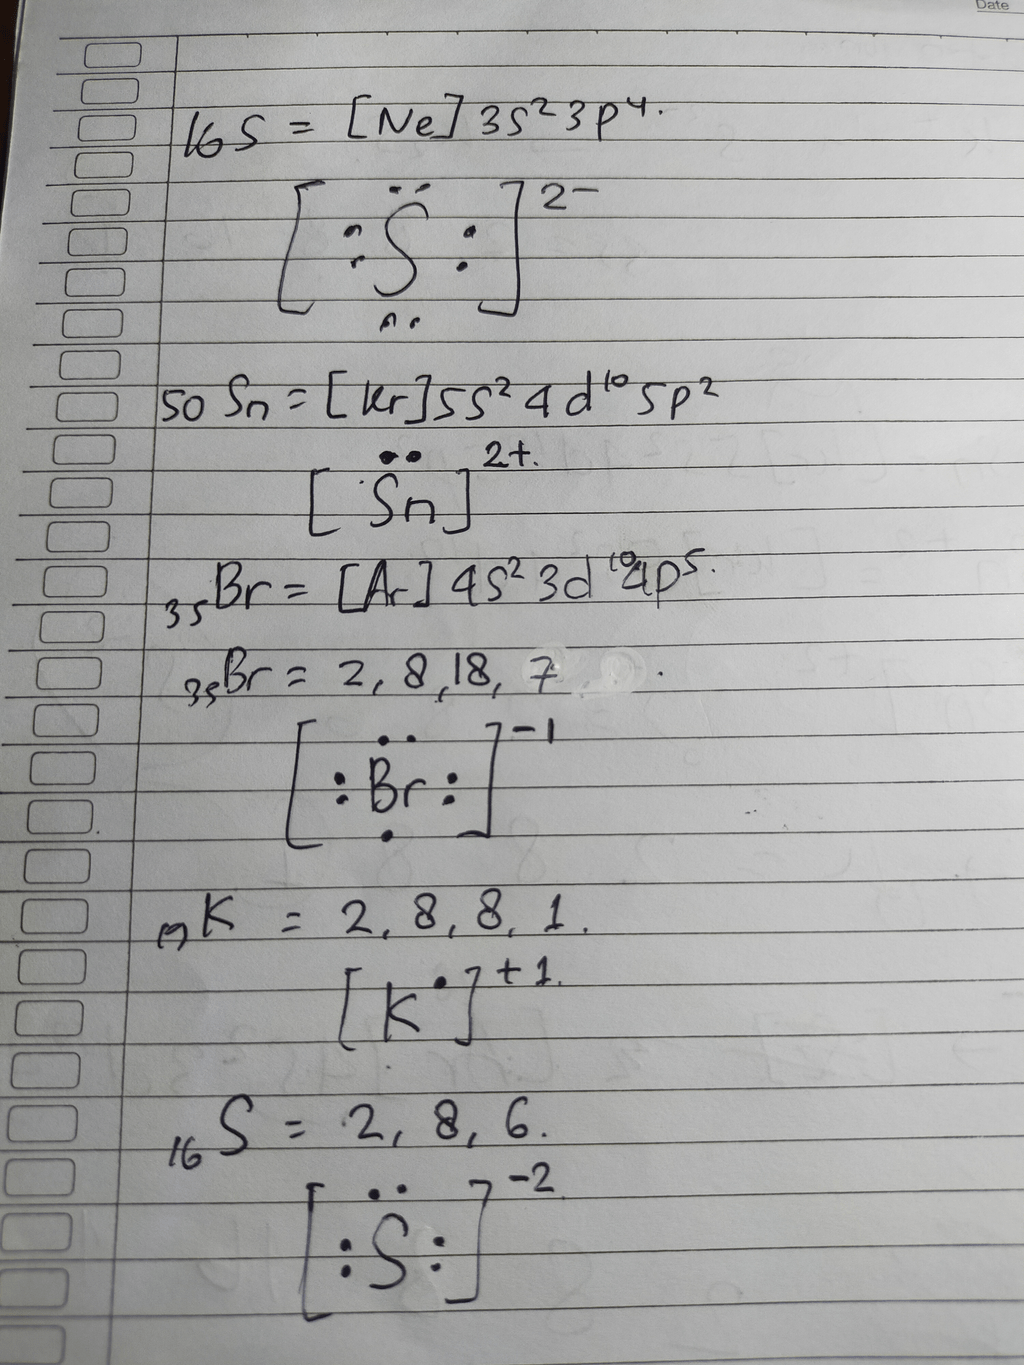 Date
16S = [Ne] 3s² 3p⁴.
[:S̈:]²⁻
..
50 Sn = [Kr] 5s² 4d¹⁰ 5p²
[S̈n]²⁺.
₃₅Br = [Ar] 4s² 3d¹⁰ 4p⁵.
₃₅Br = 2, 8, 18, 7 .
[:B̈r:]⁻¹
.
₁₉K = 2, 8, 8, 1.
[K•]⁺¹.
₁₆S = 2, 8, 6.
[:S̈:]⁻²